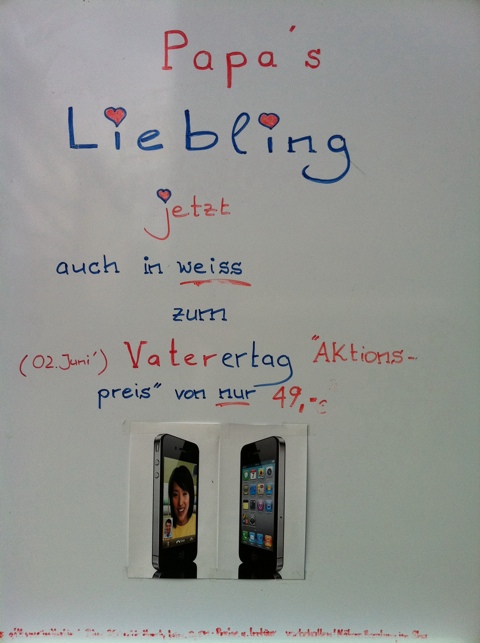 Papa's
Liebling
jetzt
auch in weiss
zum
(02.Juni') Vaterertag "Aktions-
preis" von nur 49,-€